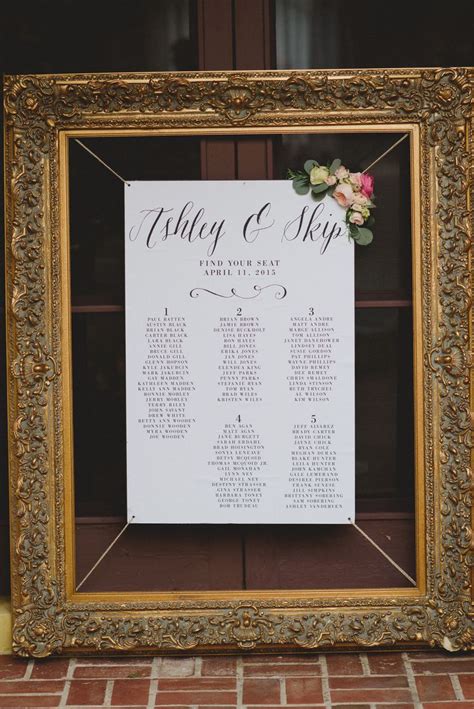 Ashley & Skip
FIND YOUR SEAT
APRIL 11, 2015
1
PAUL BATTEN
AUSTIN BLACK
BRIAN BLACK
CARTER BLACK
LARA BLACK
ANNIE GILL
BRUCE GILL
DONALD GILL
GLENN HOPSON
KYLE JAKUCIN
KYLE JAKUCIN
GAY MADDEN
KATHLEEN MADDEN
KELLY ANN MADDEN
BONNIE MOBLEY
JERRY MOBLEY
TERRY RILEY
JOHN SAVANT
DREW WHITE
BETTY ANN WOODEN
BONNIE WOODEN
MYRA WOODEN
JOE WOODEN
2
BRIAN BROWN
JAMIE BROWN
DENISE BUCKLEY
LISA HAYES
RON HAYES
BILL JONES
ERIKA JONES
JAN JONES
WILL JONES
ELENORA KING
JEFF PENNY
PENNY PARKS
STEFANIE RYAN
TOM RYAN
BLAKE TOWN
KIM TOWN
3
ANGELA ANDRE
MATT ANDRE
MARGE ALLISON
MATT ALLISON
JANET DANGHOWER
LINDSEY DEAL
SUSIE GORDON
PAT PHILLIPS
WAYNE PHILLIPS
DAVID REMEY
DEE REMEY
CHRIS SWALDONE
LINDA STINSON
BETH TRYCHEL
AL WILSON
KIM WILSON
4
BEN AGAN
MATT AGAN
JANE BURGETT
SARAH ERDAHL
BRAD HOISINGTON
SONYA LENEAVE
BETSY MCQUOID
THOMAS MCQUOID JR.
GAIL MONAHAN
LYNN NEY
MICHAEL NEY
DESTINY STRASSER
GINA STRASSER
BARBARA TONEY
GEORGE TONEY
BOB TRUDEAU
5
JEFF ALVAREZ
BRADY CARTER
DAVID CHICK
JAYNE CHICK
RYAN COLE
MEGHAN DURAN
BLAKE HUNTER
LEILA HUNTER
JOHN KAMCMAN
GALE LEMERAND
DESIREE PERRY
FRANK SENESE
JILL SIMPKINS
BRITTANY SOBERING
SAM SOBERING
ASHLEY VANDERSEN